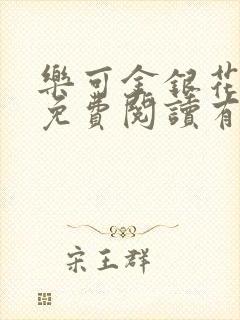 樂可金銀花
免費閱讀有
宋王群